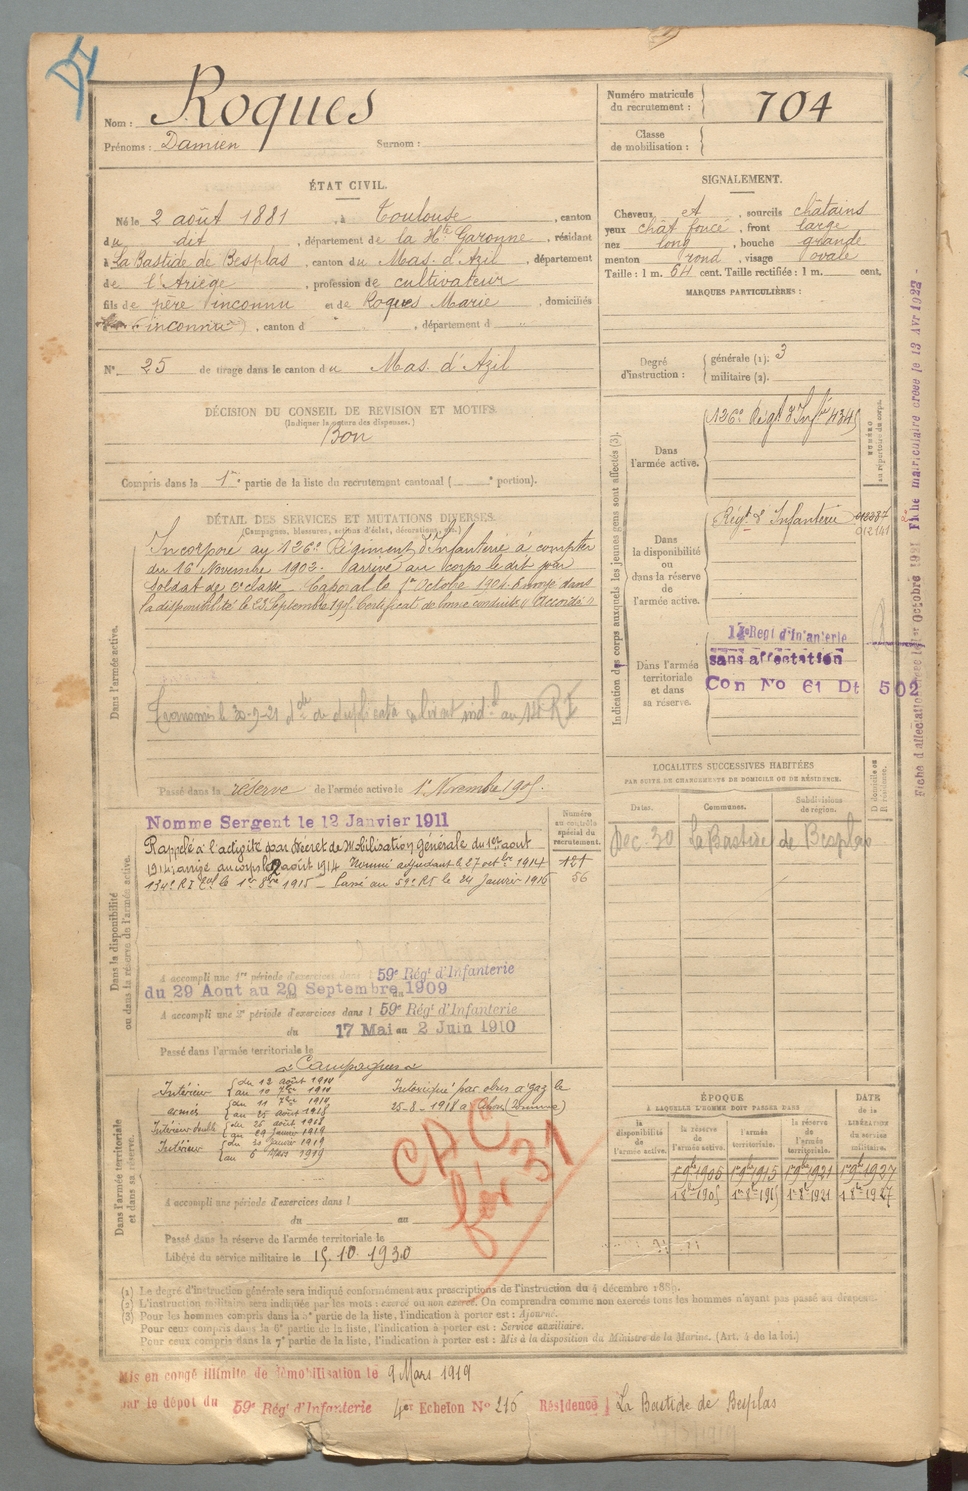 Nom : Roques
Prénoms : Damien Surnom :
Numéro matricule
du recrutement : 704
Classe
de mobilisation :
ÉTAT CIVIL.
Né le 2 août 1881, à Toulouse, canton
du dit, département de la Hte Garonne, résidant
à La Bastide de Besplas, canton du Mas. d'Azil, département
de l'Ariège, profession de cultivateur
fils de père inconnu et de Roques Marie, domiciliés
inconnu, canton d , département d
N° 25 de tirage dans le canton du Mas. d'Azil
SIGNALEMENT.
Cheveux et, sourcils châtains
yeux chât foncé, front large
nez long, bouche grande
menton rond, visage ovale
Taille : 1 m. 64 cent. Taille rectifiée : 1 m. cent.
MARQUES PARTICULIÈRES :
Degré
d'instruction :
générale (1): 3
militaire (2).
DÉCISION DU CONSEIL DE REVISION ET MOTIFS.
(Indiquer la nature des dispenses.)
Bon
Compris dans la 1re partie de la liste du recrutement cantonal ( e portion).
DÉTAIL DES SERVICES ET MUTATIONS DIVERSES.
(Campagnes, blessures, actions d'éclat, décorations, etc.)
Dans l'armée active.
Incorporé au 126e Régiment d'Infanterie à compter
du 16 Novembre 1902. arrivé au corps le dit jour
soldat de 2e classe. Caporal le 1er Octobre 1904. Envoyé dans
la disponibilité le 23 Septembre 1905. Certificat de bonne conduite "Accordé"
Passé dans la réserve de l'armée active le 1er Novembre 1905.
Indication des corps auxquels les jeunes gens sont affectés (3).
NUMÉRO
au répertoire du corps.
Dans
l'armée active.
126e Régt d'Infie 4345
Dans
la disponibilité
ou
dans la réserve
de
l'armée active.
Régt d'Infanterie
012141
Dans l'armée
territoriale
et dans
sa réserve.
14e Regt d'Infanterie
sans affectation
Con No 61 Dt 502
LOCALITÉS SUCCESSIVES HABITÉES
PAR SUITE DE CHANGEMENTS DE DOMICILE OU DE RÉSIDENCE.
Dates.
Communes.
Subdivisions
de région.
D domicile ou
R résidence.
Dec. 30 La Bastide de Besplas
Dans la disponibilité
ou dans la réserve de l'armée active.
Numéro
au contrôle
spécial du
recrutement.
Nomme Sergent le 12 Janvier 1911
Rappelé à l'activité par Décret de Mobilisation Générale du 1er août
1914, arrivé au corps le 2 août 1914. Nommé adjudant le 27 octbre 1914
134e RI le 1er 8bre 1915 _ Passé au 59e RI le 24 Janvier 1916
56
A accompli une 1re période d'exercices dans l 59e Régt d'Infanterie
du 29 Aout au 20 Septembre 1909
A accompli une 2e période d'exercices dans l 59e Régt d'Infanterie
du 17 Mai au 2 Juin 1910
Passé dans l'armée territoriale le
Dans l'armée territoriale
et dans sa réserve.
Campagnes
Intérieur du 12 août 1914
au 10 7bre 1914
armées du 11 7bre 1914
au 25 août 1918
Intérieur double du 26 août 1918
au 29 janvier 1919
Intérieur du 30 janvier 1919
au 6 Mars 1919
Intoxiqué par obus à gaz le
25-8-1918 à
CDC
for 31
A accompli une période d'exercices dans l
du au
Passé dans la réserve de l'armée territoriale le
Libéré du service militaire le 15. 10. 1930
ÉPOQUE
À LAQUELLE L'HOMME DOIT PASSER DANS
la
disponibilité
de
l'armée active.
la réserve
de
l'armée active.
l'armée
territoriale.
la réserve
de
l'armée
territoriale.
DATE
de la
LIBÉRATION
du service
militaire.
1er 9bre 1905 1er 9bre 1915 1er 9bre 1921 1er 9bre 1927
1er 8bre 1905 1er 8bre 1915 1er 8bre 1921 1er 8bre 1927
(1) Le degré d'instruction générale sera indiqué conformément aux prescriptions de l'instruction du 4 décembre 1889.
(2) L'instruction militaire sera indiquée par les mots : exercé ou non exercé. On comprendra comme non exercés tous les hommes n'ayant pas passé au drapeau.
(3) Pour les hommes compris dans la 5e partie de la liste, l'indication à porter est : Ajourné.
Pour ceux compris dans la 6e partie de la liste, l'indication à porter est : Service auxiliaire.
Pour ceux compris dans la 7e partie de la liste, l'indication à porter est : Mis à la disposition du Ministre de la Marine. (Art. 4 de la loi.)
Mis en congé illimité de démobilisation le 9 Mars 1919
par le dépot du 59e Régt d'Infanterie 4er Echelon No 216 Résidence La Bastide de Besplas